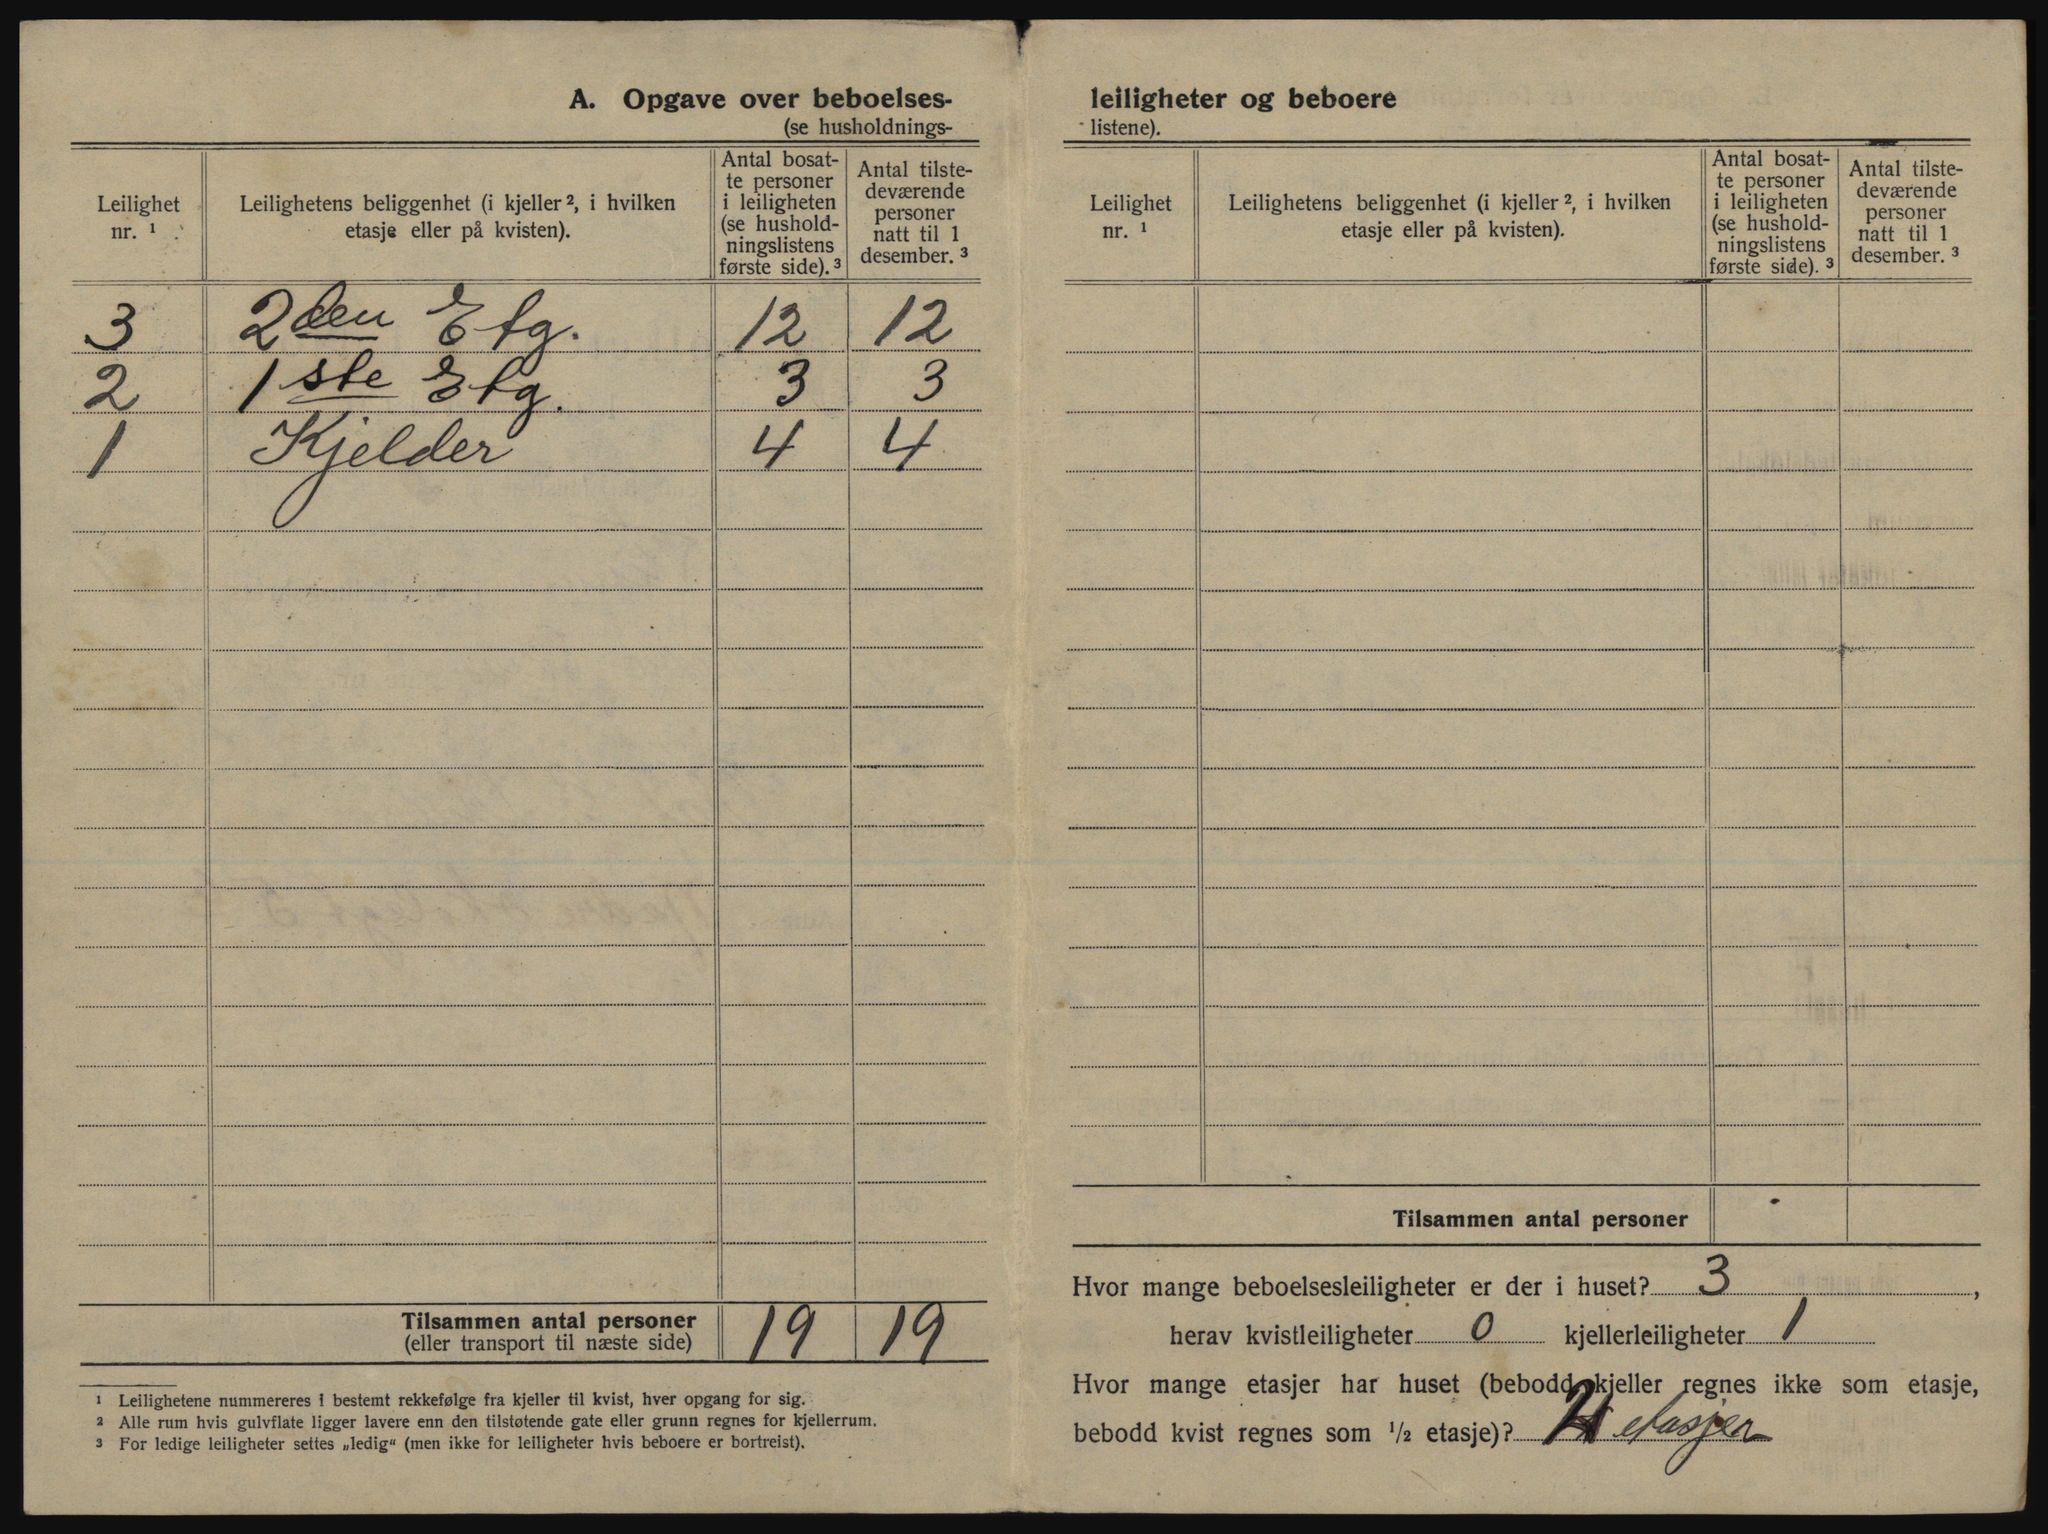 A. Opgave over beboelses-
(se husholdnings-
Leilighet nr. ¹
Leilighetens beliggenhet (i kjeller ², i hvilken etasje eller på kvisten).
Antal bosat-
te personer
i leiligheten
(se hushold-
ningslistens
første side). ³
Antal tilste-
deværende
personer
natt til 1
desember. ³
3 2den Etg. 12 12
2 1ste Etg. 3 3
1 Kjelder 4 4
Tilsammen antal personer 19 19
(eller transport til næste side)
¹ Leilighetene nummereres i bestemt rekkefølge fra kjeller til kvist, hver opgang for sig.
² Alle rum hvis gulvflate ligger lavere enn den tilstøtende gate eller grunn regnes for kjellerrum.
³ For ledige leiligheter settes „ledig“ (men ikke for leiligheter hvis beboere er bortreist).
leiligheter og beboere
listene).
Leilighet
nr. ¹
Leilighetens beliggenhet (i kjeller ², i hvilken
etasje eller på kvisten).
Antal bosat-
te personer
i leiligheten
(se hushold-
ningslistens
første side). ³
Antal tilste-
deværende
personer
natt til 1
desember. ³
Tilsammen antal personer
Hvor mange beboelsesleiligheter er der i huset? 3 ,
herav kvistleiligheter 0 kjellerleiligheter 1
Hvor mange etasjer har huset (bebodd kjeller regnes ikke som etasje,
bebodd kvist regnes som ½ etasje)? 2 etasjer